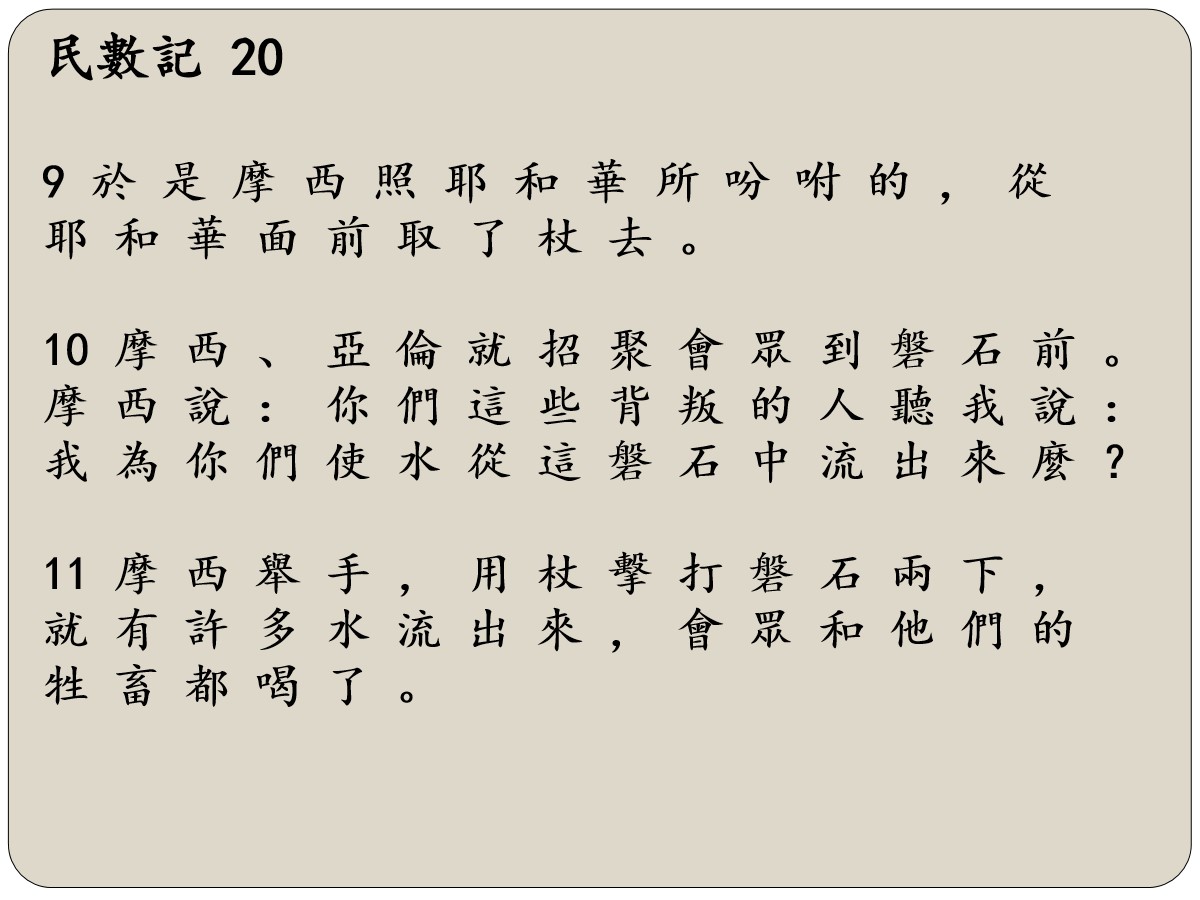 民數記 20
9 於 是 摩 西 照 耶 和 華 所 吩 咐 的 , 從
耶 和 華 面 前 取 了 杖 去 。
10 摩 西 、 亞 倫 就 招 聚 會 眾 到 磐 石 前 。
摩 西 說 : 你 們 這 些 背 叛 的 人 聽 我 說 :
我 為 你 們 使 水 從 這 磐 石 中 流 出 來 麼 ?
11 摩 西 舉 手 , 用 杖 擊 打 磐 石 兩 下 ,
就 有 許 多 水 流 出 來 , 會 眾 和 他 們 的
牲 畜 都 喝 了 。